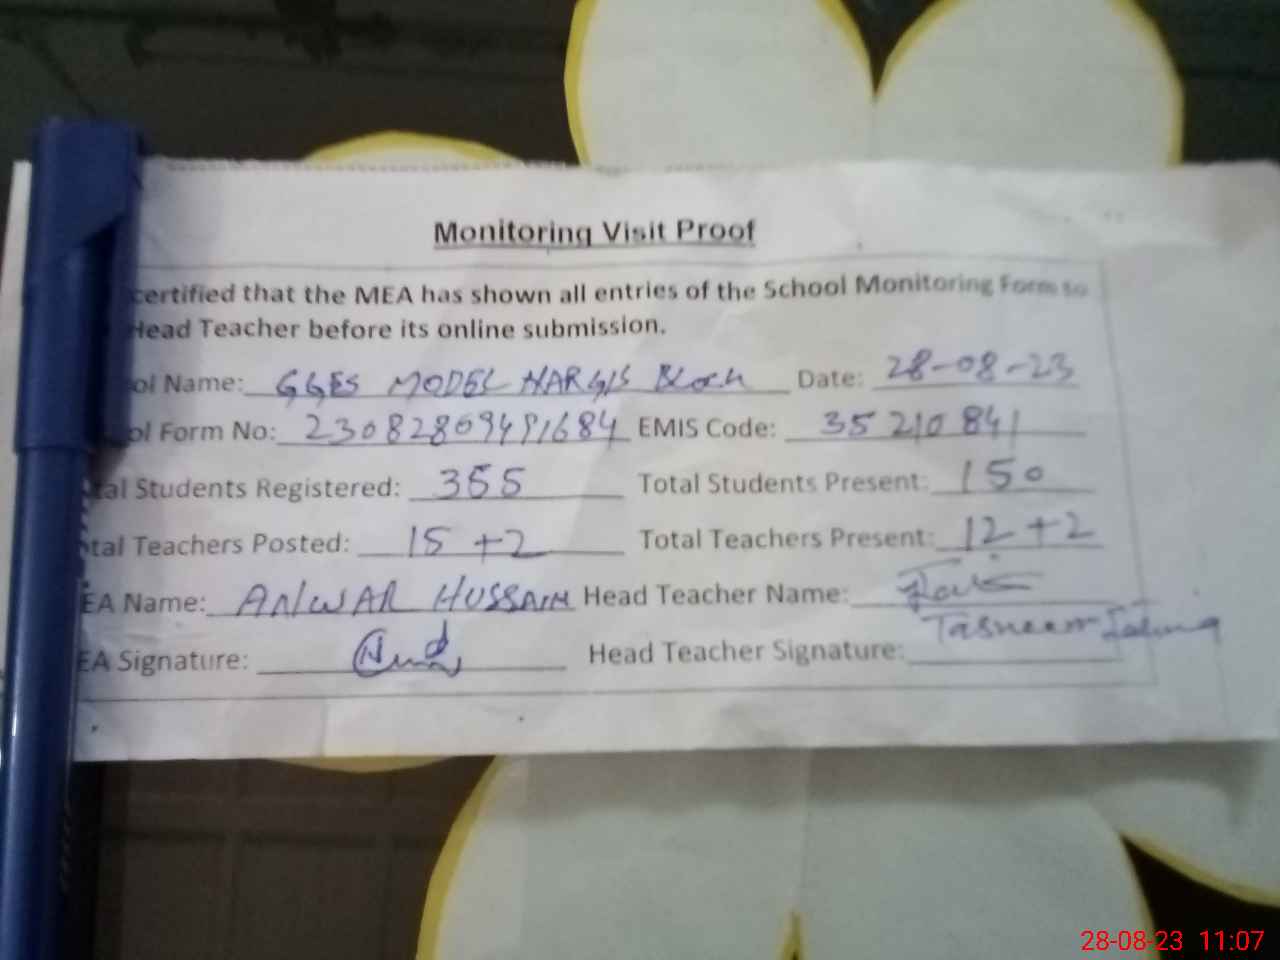 Monitoring Visit Proof
certified that the MEA has shown all entries of the School Monitoring Form to
Head Teacher before its online submission.
ol Name: GGES MODEL NARGIS Block Date: 28-08-23
ol Form No: EMIS Code: 35210841
tal Students Registered: 355 Total Students Present: 150
tal Teachers Posted: 15 +2 Total Teachers Present: 12 +2
EA Name: ANWAR HUSSAIN Head Teacher Name:
Tasneem
EA Signature: Head Teacher Signature:
28-08-23 11:07